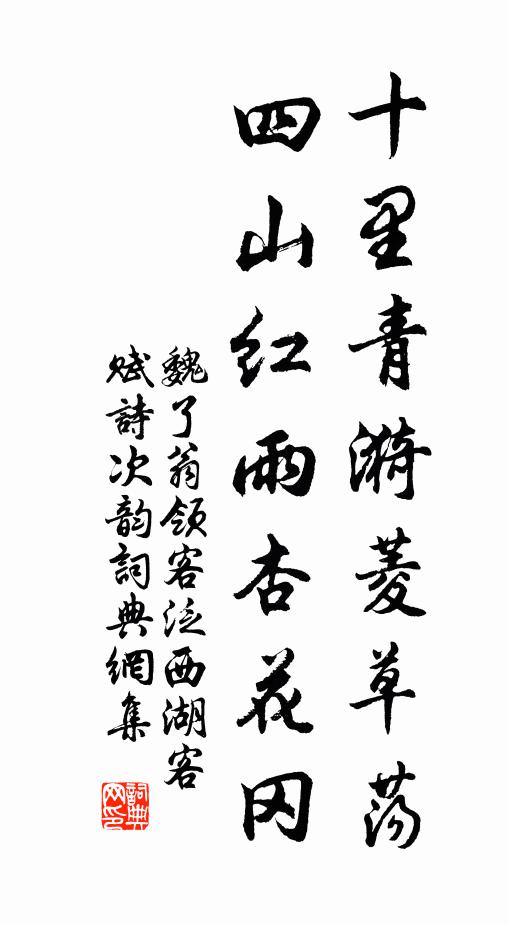 十里青漪菱草荡
四山红雨杏花冈
魏了翁领客泛西湖客
赋詩次韵詞典網集
詞典网印